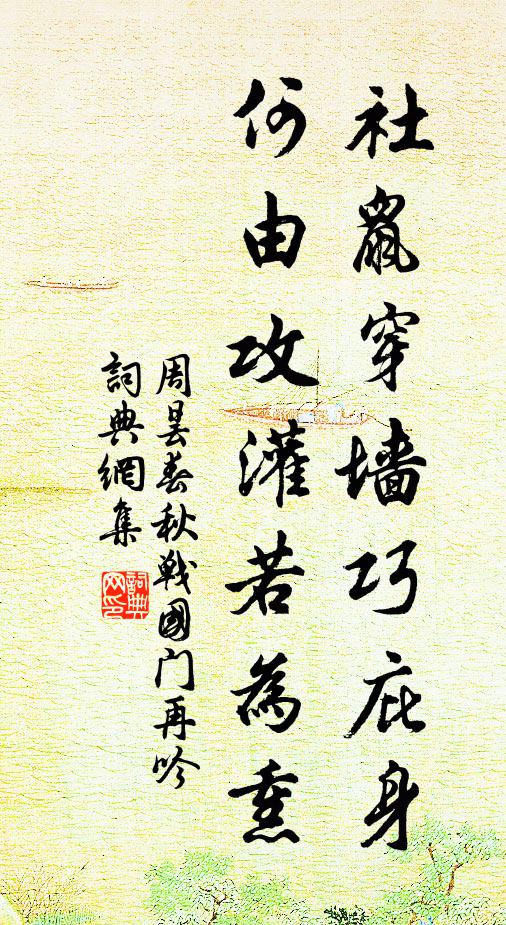 社鼠穿墻巧庇身
何由攻灌若為熏
周昙春秋戰國门再吟
詞典網集
詞典网印